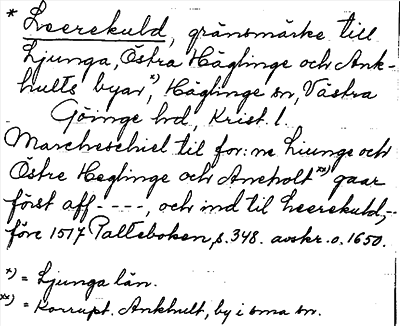 * Leerekuld, gränsmärke till
Ljunga, Östra Häglinge och Ank-
hults byar, *) Häglinge sn, Västra
Göinge hd, Krist. l.
Marcheschiel til for:ne Liunge och
Östre Heglinge och Ancholt **) gaar
först aff ----, och ind til Leerekuld,--
före 1517 Palteboken, s. 348. avskr. o. 1650.
*) = Ljunga län.
**) = Korrupt. Ankhult, by i sma sn.